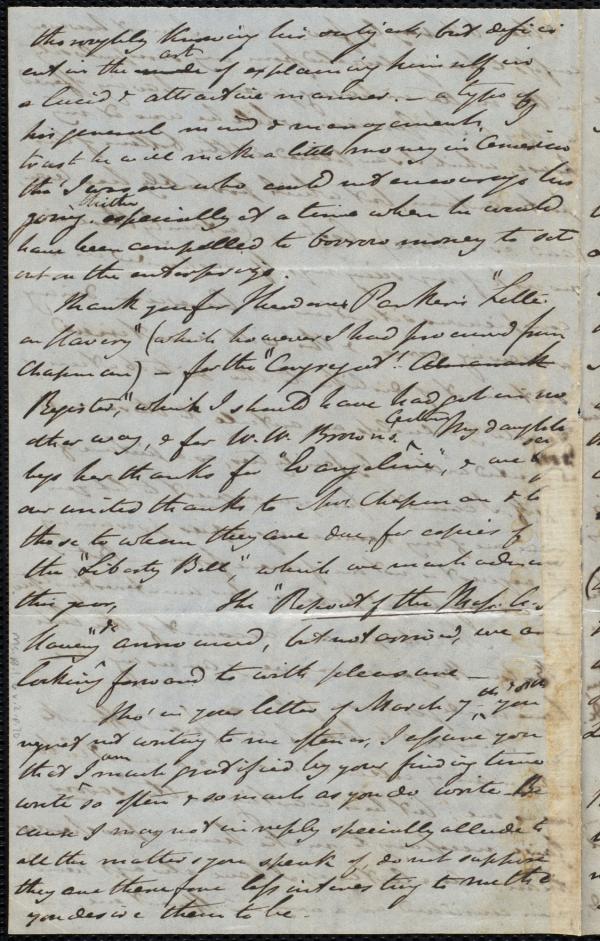 thoroughly knowing his subject, but defici
ent in the art of explaining himself in
a lucid & attractive manner. — a type of
his general mind & management. I
trust he will make a little money in America
tho' I was one who could not encourage his
going thither especially at a time when he would
have been compelled to borrow money to set
out on the enterprize.
Thank you for Theodore Parker's "Letter
on Slavery" (which however I had procured from
Chapman) — for the "Congregat! Almanack
Register," which I should have had got in no
other way, & for W. W. Brown's. My daughter
begs her thanks for "Evangeline", & we
our united thanks to Mrs. Chapman & to
those to whom they are due, for copies of
the "Liberty Bell," which we much admire
this year, The "Report of the Mass. A.
Slavery" announced, but not arrived, we are
looking forward to with pleasure —
Tho' in your letter of March 7th you
regret not writing to me oftener, I assure you
that I am much gratified by your finding time
write so often & so much as you do write. Be
cause I may not in reply specially allude to
all the matters you speak of, do not suppose
they are therefore less interesting to me tha
you desire them to be.